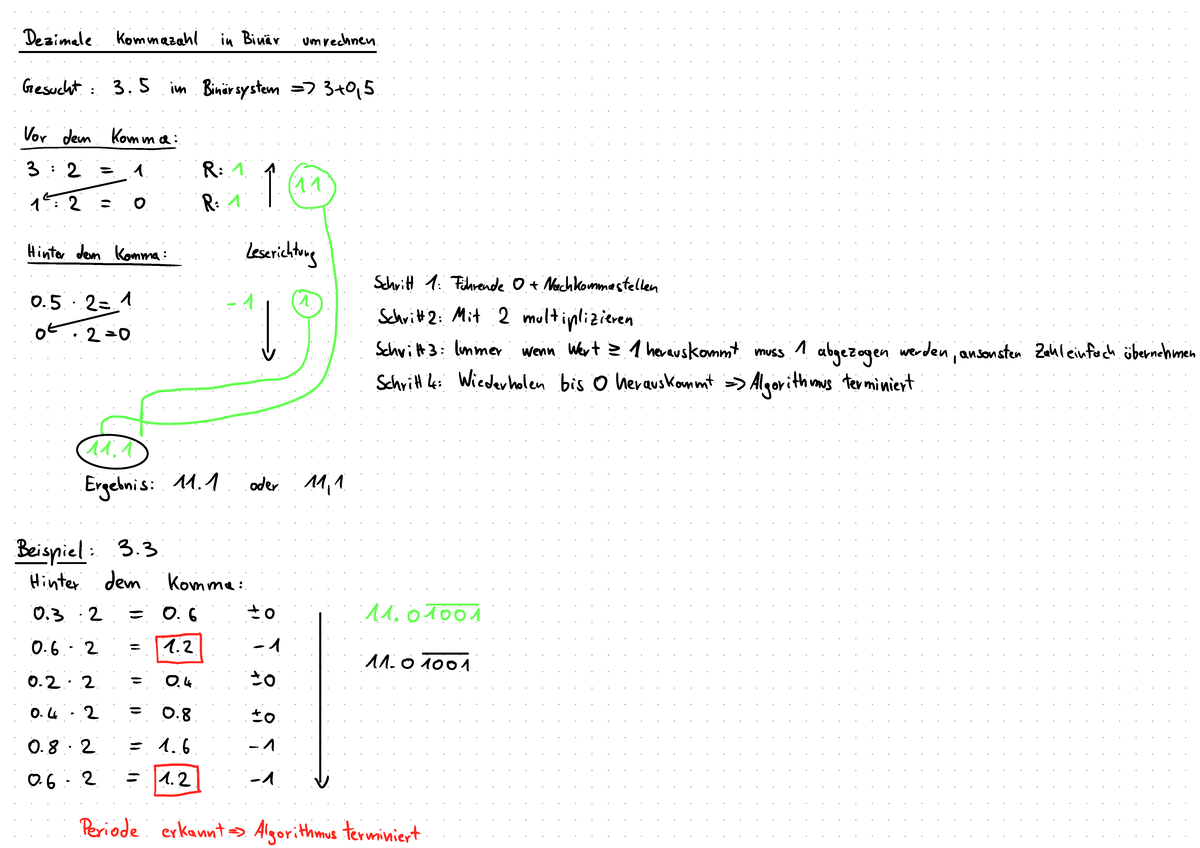 Dezimale Kommazahl in Binär umrechnen
Gesucht: 3.5 im Binärsystem => 3+0,5
Vor dem Komma:
3 : 2 = 1 R: 1
1 : 2 = 0 R: 1
11
Hinter dem Komma: Leserichtung
0.5 · 2 = 1 -1 1
0 · 2 = 0
Schritt 1: Führende 0 + Nachkommastellen
Schritt 2: Mit 2 multiplizieren
Schritt 3: Immer wenn Wert ≥ 1 herauskommt muss 1 abgezogen werden, ansonsten Zahl einfach übernehmen
Schritt 4: Wiederholen bis 0 herauskommt => Algorithmus terminiert
11.1
Ergebnis: 11.1 oder 11,1
Beispiel: 3.3
Hinter dem Komma:
0.3 · 2 = 0.6 ±0 11.01̅0̅0̅1̅
0.6 · 2 = 1.2 -1 11.01̅0̅0̅1̅
0.2 · 2 = 0.4 ±0
0.4 · 2 = 0.8 ±0
0.8 · 2 = 1.6 -1
0.6 · 2 = 1.2 -1
Periode erkannt => Algorithmus terminiert